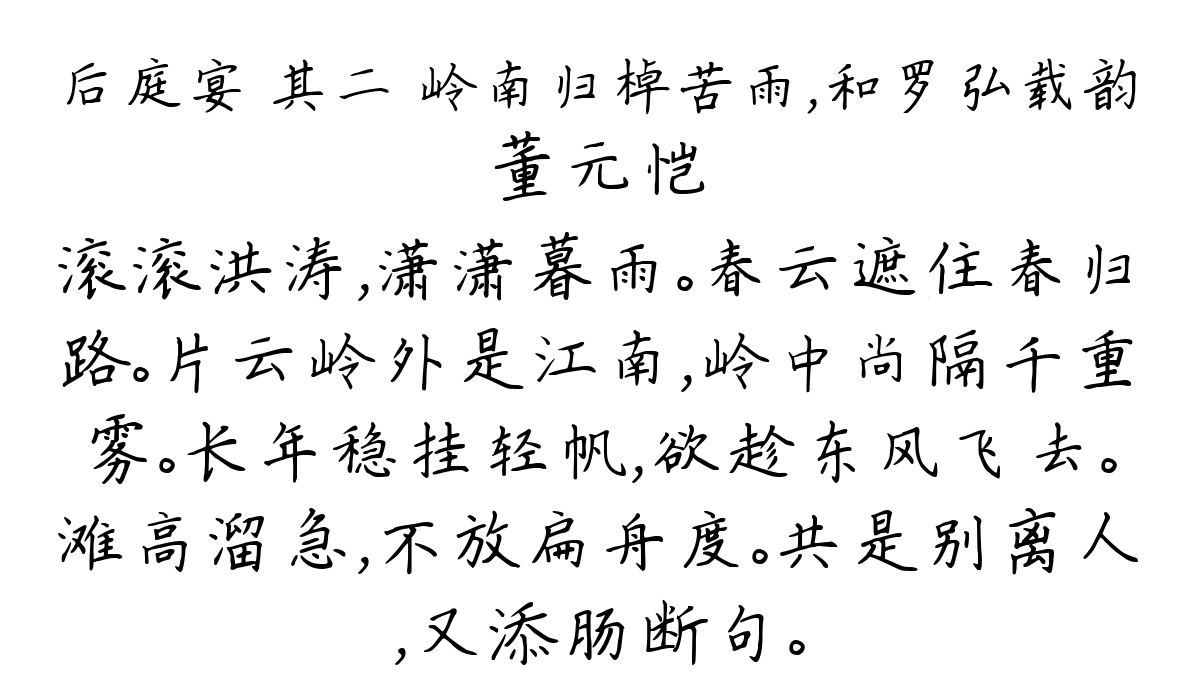 后庭宴 其二 岭南归棹苦雨,和罗弘载韵
董元恺
滚滚洪涛,潇潇暮雨。春云遮住春归
路。片云岭外是江南,岭中尚隔千重
雾。长年稳挂轻帆,欲趁东风飞去。
滩高溜急,不放扁舟度。共是别离人
,又添肠断句。